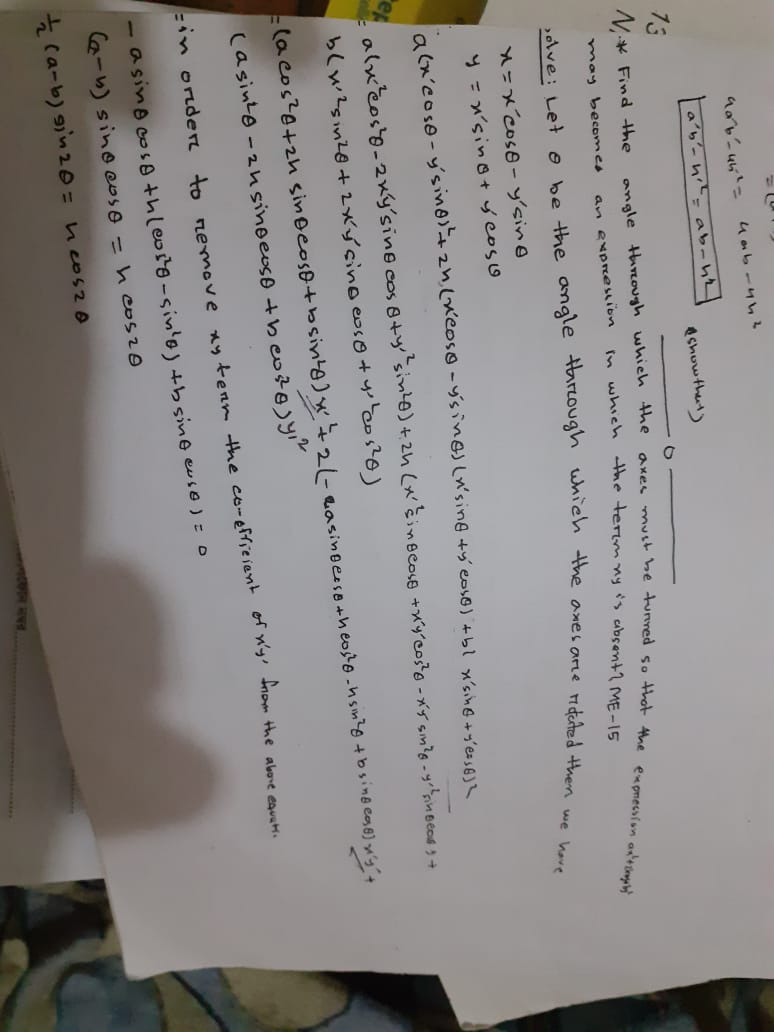 4a'b'-4h'² = 4ab-4h²
a'b'-h'² = ab-h² (showthat)
N.* Find the angle through which the axes must be turned so that the expression
may becomes an expression in which the term xy is absent? ME-15
solve: Let θ be the angle through which the axes are rotated then we have
x = x'cosθ - y'sinθ
y = x'sinθ + y'cosθ
a(x'cosθ - y'sinθ)² + 2h(x'cosθ - y'sinθ)(x'sinθ + y'cosθ) + b(x'sinθ + y'cosθ)²
= a(x'²cos²θ - 2x'y'sinθcosθ + y'²sin²θ) + 2h(x'²sinθcosθ + x'y'cos²θ - x'y'sin²θ - y'²sinθcosθ) +
b(x'²sin²θ + 2x'y'sinθcosθ + y'²cos²θ)
= (acos²θ + 2hsinθcosθ + bsin²θ)x'² + 2(-asinθcosθ + hcos²θ - hsin²θ + bsinθcosθ)x'y' +
(asin²θ - 2hsinθcosθ + bcos²θ)y'²
= in order to remove xy term the co-efficient of x'y' from the above equati.
- asinθcosθ + h(cos²θ - sin²θ) + bsinθcosθ) = 0
(a-b)sinθcosθ = hcos2θ
½(a-b)sin2θ = hcos2θ